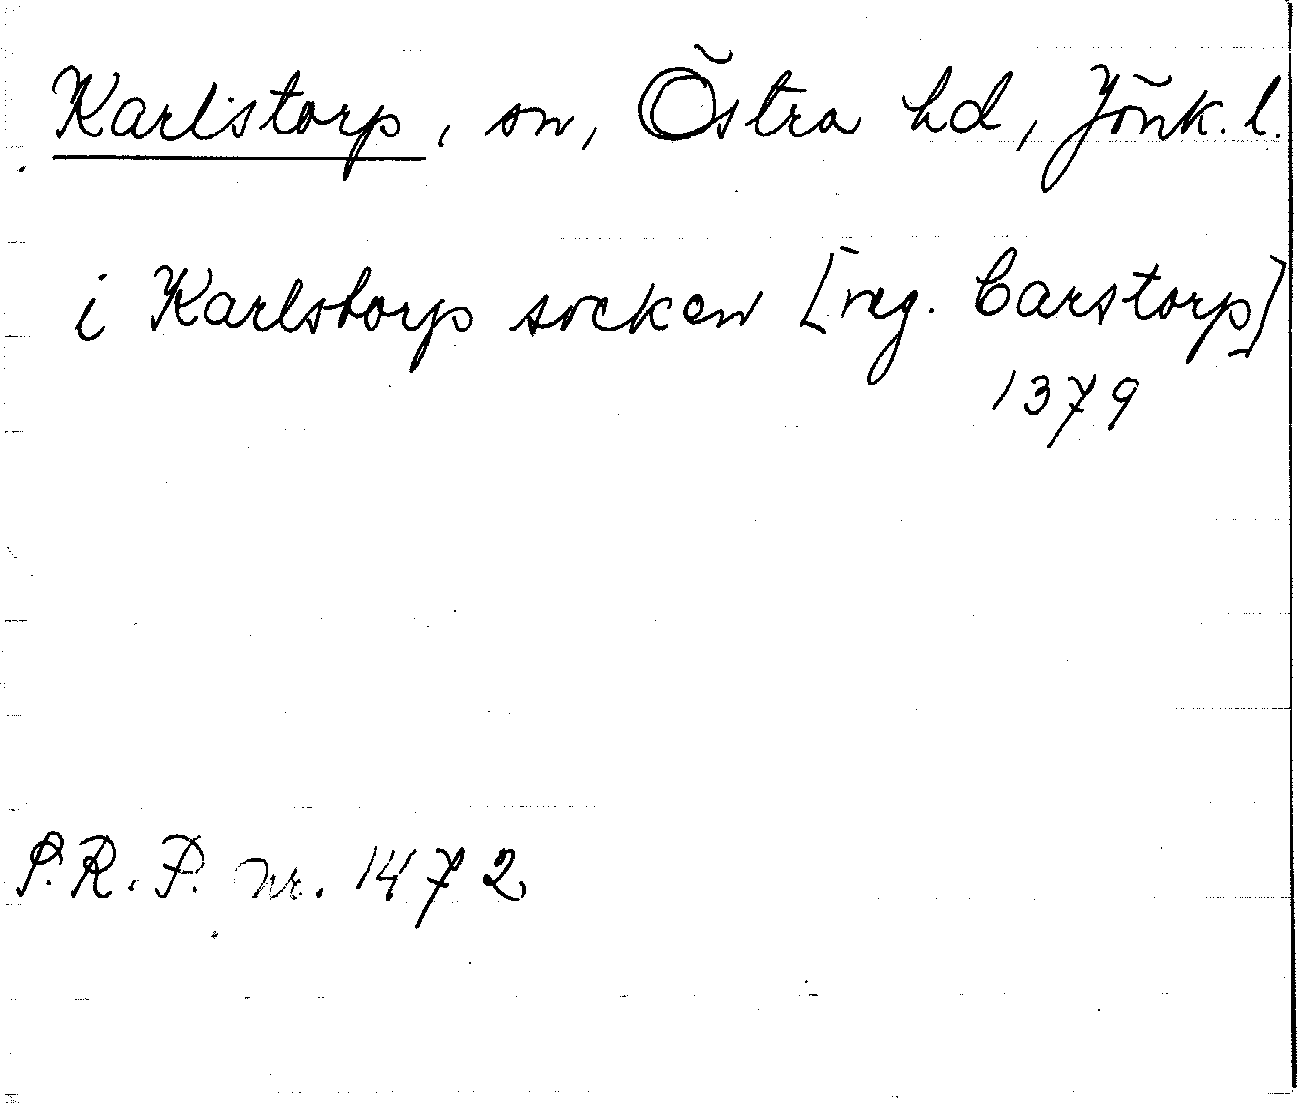 Karlstorp, sn, Östra hd, Jönk. l.
i Karlstorp socken [reg. Carstorp]
1379
P.R.P. nr. 1472